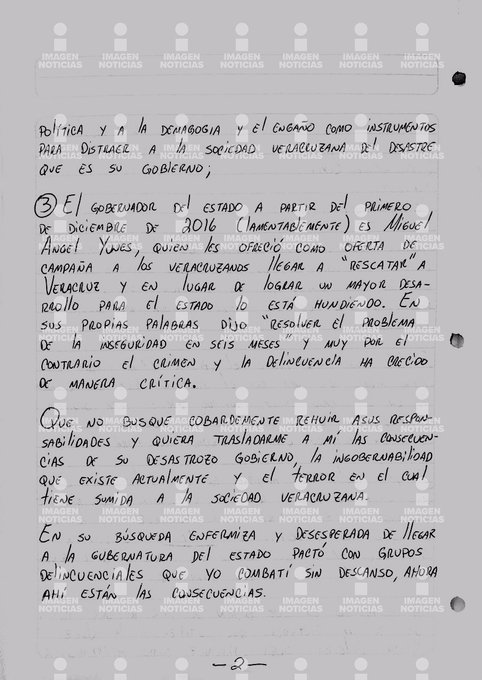 POLÍTICA Y A LA DEMAGOGIA Y EL ENGAÑO COMO INSTRUMENTOS
PARA DISTRAER A LA SOCIEDAD VERACRUZANA DEL DESASTRE
QUE ES SU GOBIERNO;
3 EL GOBERNADOR DEL ESTADO A PARTIR DEL PRIMERO
DE DICIEMBRE DE 2016 (LAMENTABLEMENTE) ES MIGUEL
ANGEL YUNES, QUIEN LES OFRECIÓ COMO OFERTA DE
CAMPAÑA A LOS VERACRUZANOS LLEGAR A "RESCATAR" A
VERACRUZ Y EN LUGAR DE LOGRAR UN MAYOR DESA-
RROLLO PARA EL ESTADO LO ESTÁ HUNDIENDO. EN
SUS PROPIAS PALABRAS DIJO "RESOLVER EL PROBLEMA
DE LA INSEGURIDAD EN SEIS MESES" Y MUY POR EL
CONTRARIO EL CRIMEN Y LA DELINCUENCIA HA CRECIDO
DE MANERA CRÍTICA.
QUE NO BUSQUE COBARDEMENTE REHUIR A SUS RESPON-
SABILIDADES Y QUIERA TRASLADARME A MÍ LAS CONSECUEN-
CIAS DE SU DESASTROZO GOBIERNO, LA INGOBERNABILIDAD
QUE EXISTE ACTUALMENTE Y EL TERROR EN EL CUAL
TIENE SUMIDA A LA SOCIEDAD VERACRUZANA.
EN SU BÚSQUEDA ENFERMIZA Y DESESPERADA DE LLEGAR
A LA GUBERNATURA DEL ESTADO PACTÓ CON GRUPOS
DELINCUENCIALES QUE YO COMBATÍ SIN DESCANSO, AHORA
AHÍ ESTÁN LAS CONSECUENCIAS.
-2-
IMAGEN NOTICIAS